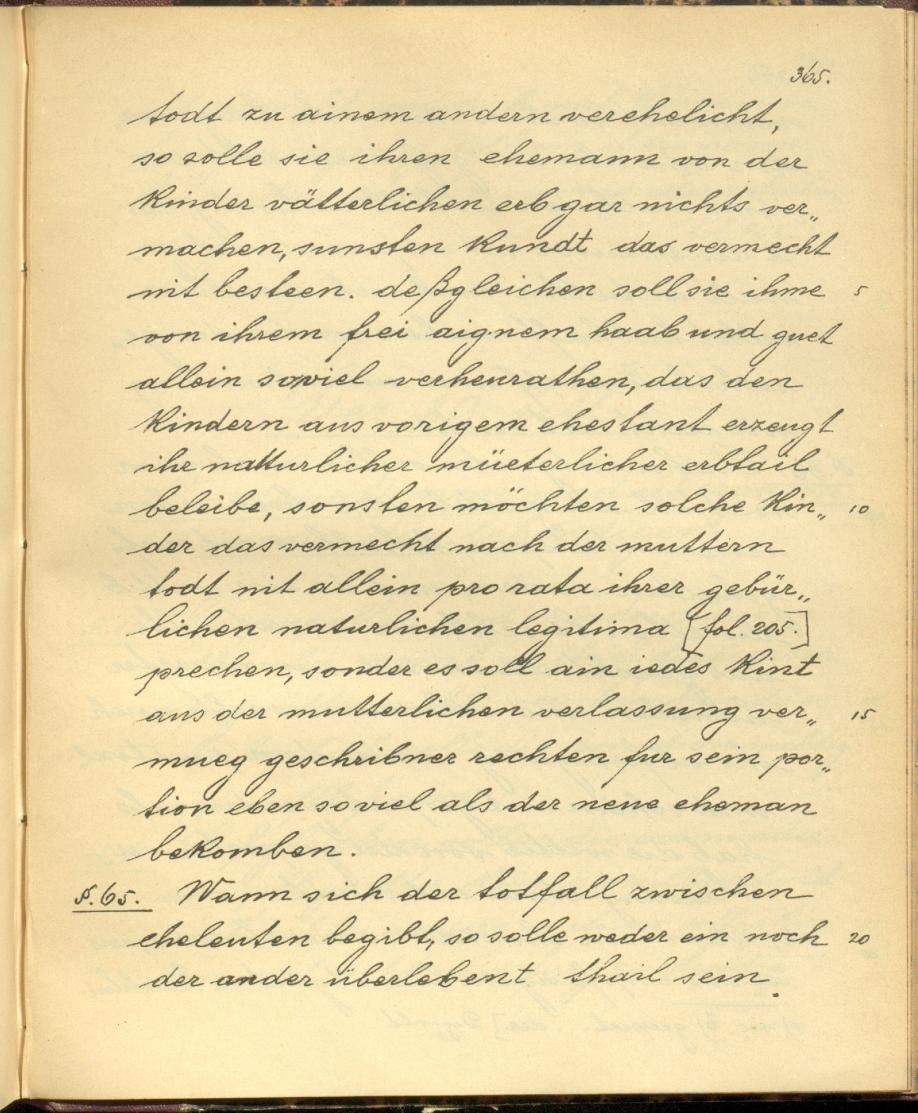 365.
todt zu ainem andern verehelicht,
so solle sie ihren ehemann von der
Kinder vätterlichen erb gar nichts ver„
machen, sunsten kundt das vermecht
nit besteen. deßgleichen soll sie ihme 5
von ihrem frei aignem haab und guet
allein soviel verheurathen, das den
Kindern aus vorigem ehestant erzeugt
ihr natturlicher müeterlicher erbtail
beleibe, sonsten möchten solche Kin„ 10
der das vermecht nach der muttern
todt nit allein pro rata ihrer gebür„
lichen naturlichen legitima [fol. 205.]
prechen, sonder es soll ain iedes Kint
aus der mutterlichen verlassung ver„ 15
mueg geschribner rechten fur sein por„
tion eben so viel als der neue eheman
bekomben.
§. 65. Wann sich der totfall zwischen
eheleuten begibt, so solle weder ein noch 20
der ander überlebent thail sein